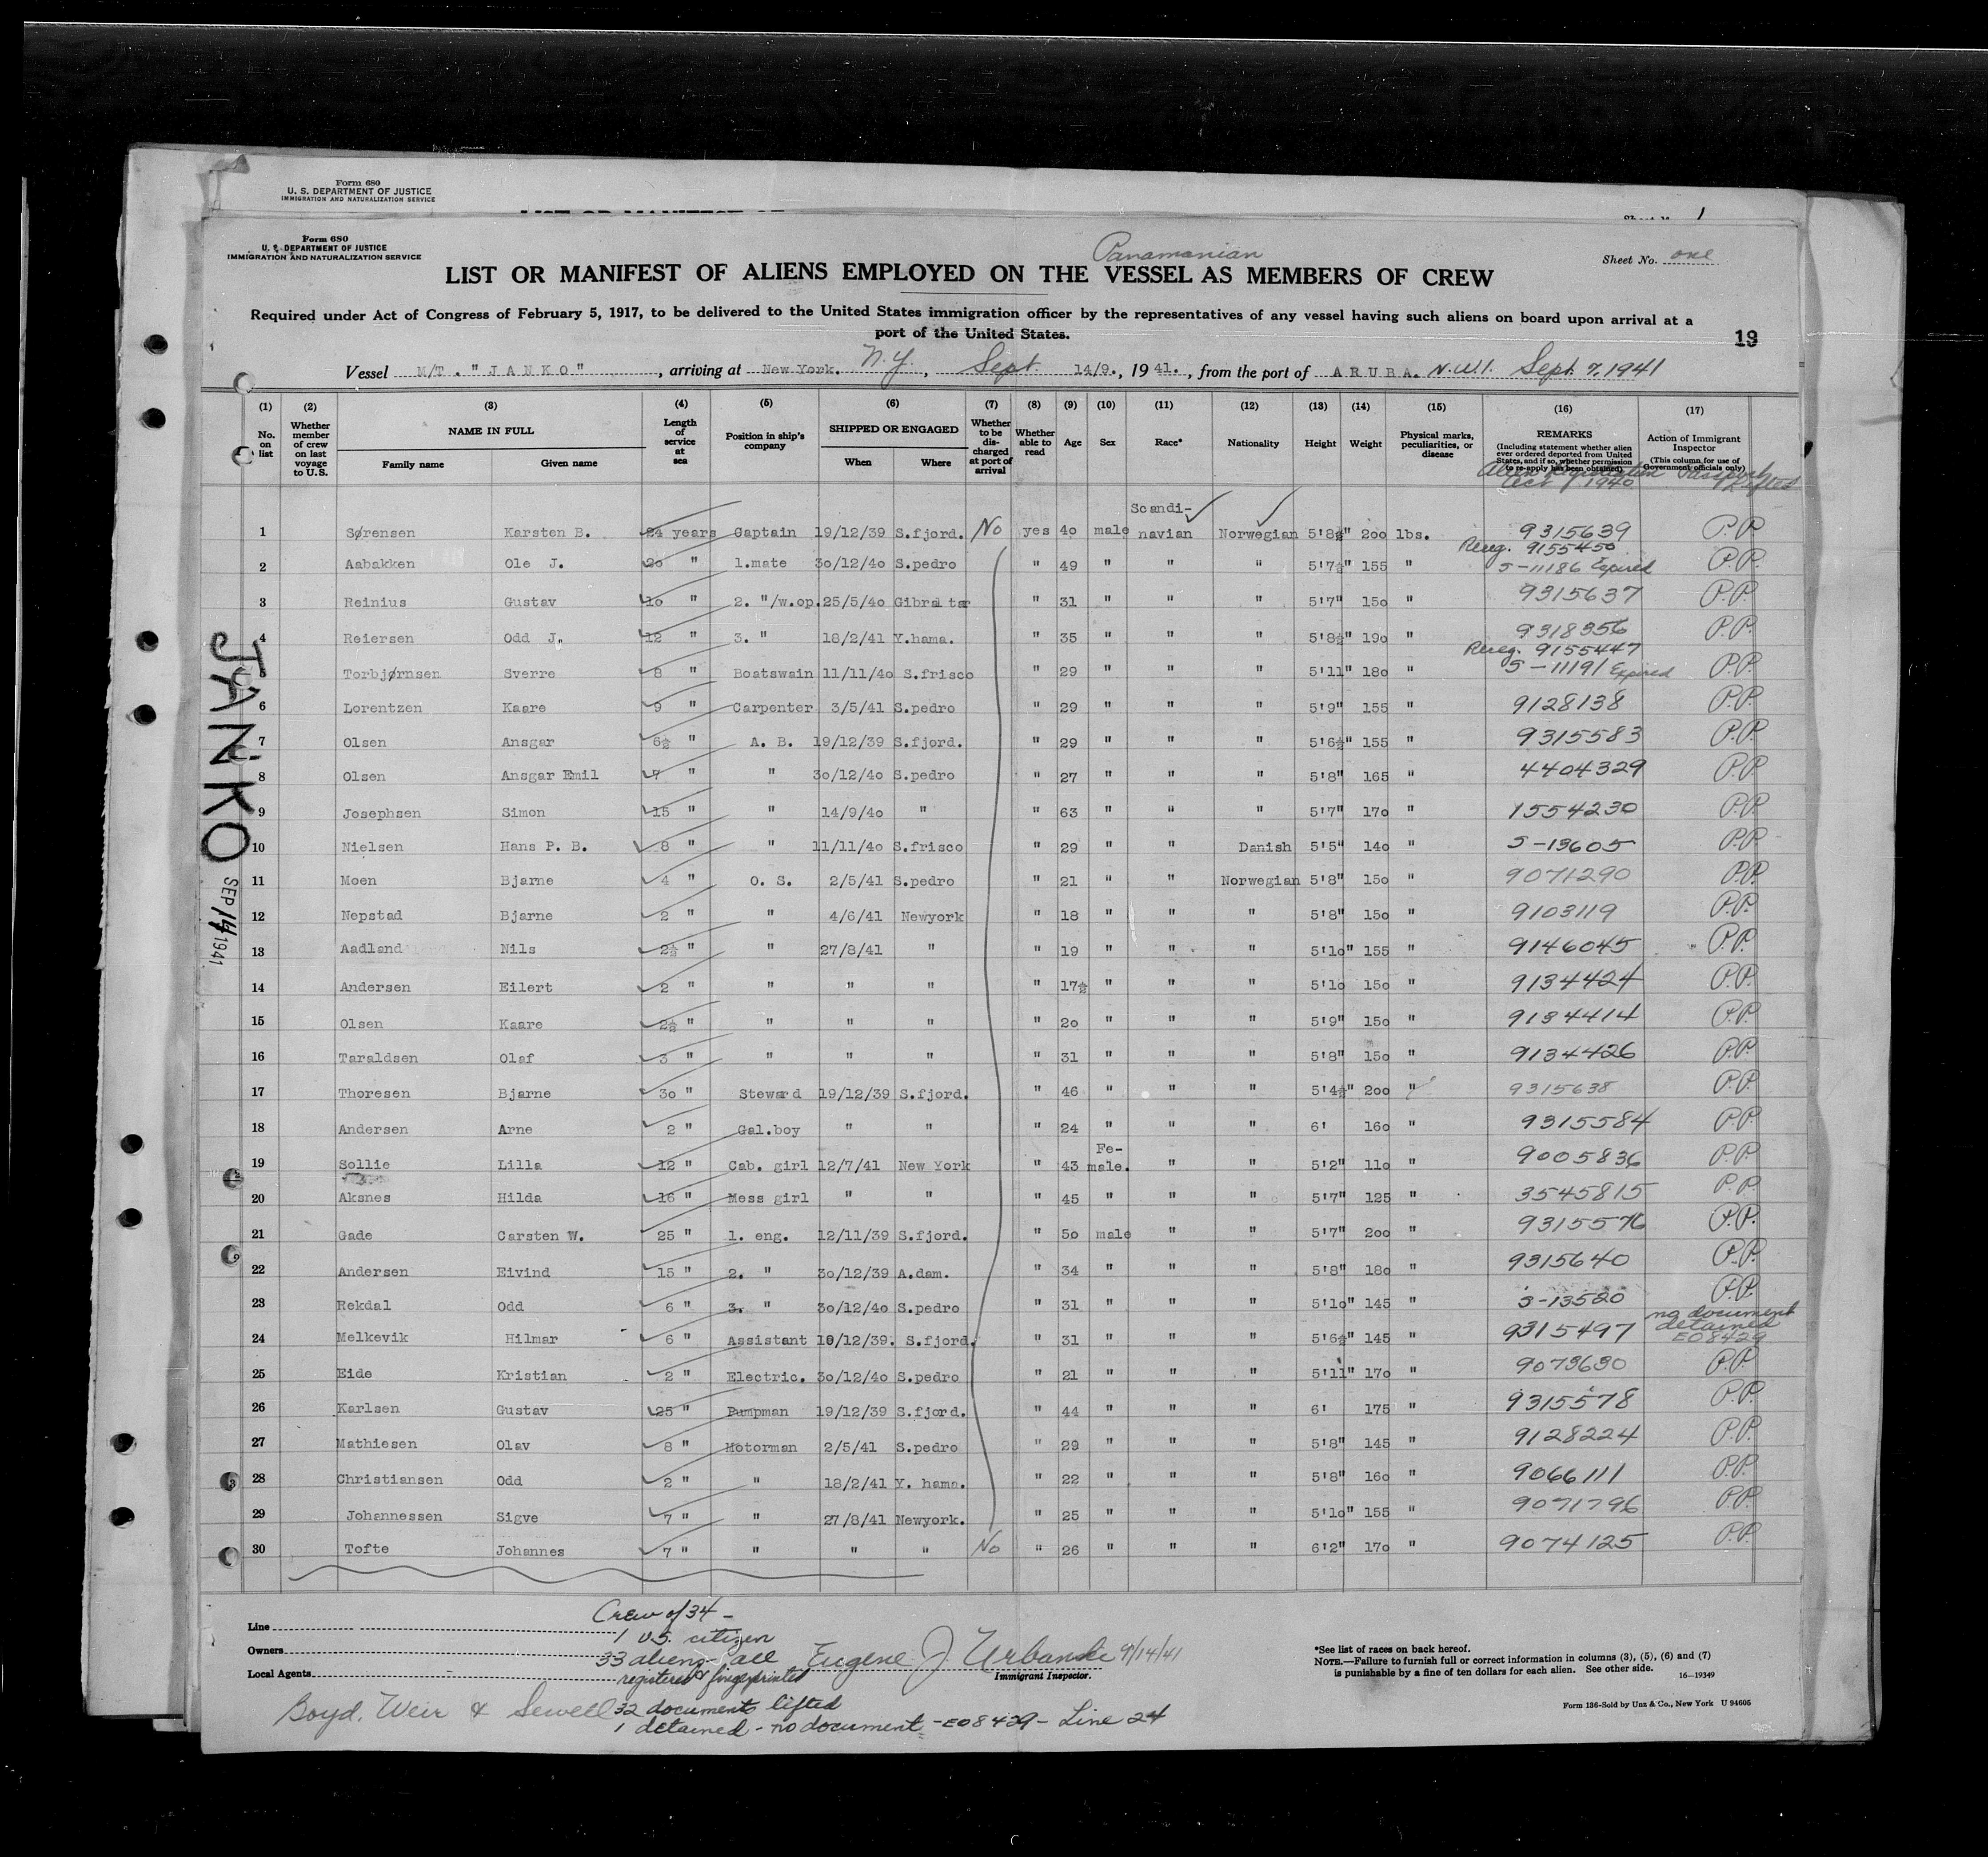 Form 680
U. S. DEPARTMENT OF JUSTICE
IMMIGRATION AND NATURALIZATION SERVICE
1
Form 680
U. S. DEPARTMENT OF JUSTICE
IMMIGRATION AND NATURALIZATION SERVICE
Panamanian
Sheet No. one
LIST OR MANIFEST OF ALIENS EMPLOYED ON THE VESSEL AS MEMBERS OF CREW
Required under Act of Congress of February 5, 1917, to be delivered to the United States immigration officer by the representatives of any vessel having such aliens on board upon arrival at a
port of the United States.
19
Vessel M/T. "JANKO", arriving at New York. N.Y., Sept. 14/9., 1941., from the port of ARUBA. N.W.I. Sept. 7, 1941
(1) (2) (3) (4) (5) (6) (7) (8) (9) (10) (11) (12) (13) (14) (15) (16) (17)
No. on list
Whether member of crew on last voyage to U.S.
NAME IN FULL
Family name Given name
Length of service at sea
Position in ship's company
SHIPPED OR ENGAGED
When Where
Whether to be discharged at port of arrival
Whether able to read
Age
Sex
Race*
Nationality
Height
Weight
Physical marks, peculiarities, or disease
REMARKS
(Including statement whether alien ever ordered deported from United States, and if so, whether permission to re-apply has been obtained)
Alien Registration Act, 1940
Action of Immigrant Inspector
(This column for use of Government officials only)
Passports Lifted
1 Sørensen Karsten B. 24 years Captain 19/12/39 S.fjord. No yes 40 male Scandi-navian Norwegian 5'8½" 200 lbs. 9315639 P.P.
2 Aabakken Ole J. 20 " 1.mate 30/12/40 S.pedro " 49 " " " 5'7½" 155 " Rereg. 9155450 5-11186 Expired P.P.
3 Reinius Gustav 10 " 2. "/w.op. 25/5/40 Gibraltar " 31 " " " 5'7" 150 " 9315637 P.P.
4 Reiersen Odd J. 12 " 3. " 18/2/41 Y.hama. " 35 " " " 5'8½" 190 " 9318356 P.P.
5 Torbjørnsen Sverre 8 " Boatswain 11/11/40 S.frisco " 29 " " " 5'11" 180 " Rereg. 9155447 5-11191 Expired P.P.
6 Lorentzen Kaare 9 " Carpenter 3/5/41 S.pedro " 29 " " " 5'9" 155 " 9128138 P.P.
7 Olsen Ansgar 6½ " A. B. 19/12/39 S.fjord. " 29 " " " 5'6½" 155 " 9315583 P.P.
8 Olsen Ansgar Emil 7 " " 30/12/40 S.pedro " 27 " " " 5'8" 165 " 4404329 P.P.
9 Josephsen Simon 15 " " 14/9/40 " " 63 " " " 5'7" 170 " 1554230 P.P.
10 Nielsen Hans P. B. 8 " " 11/11/40 S.frisco " 29 " " Danish 5'5" 140 " 5-13605 P.P.
11 Moen Bjarne 4 " O. S. 2/5/41 S.pedro " 21 " " Norwegian 5'8" 150 " 9071290 P.P.
12 Nepstad Bjarne 2 " " 4/6/41 Newyork " 18 " " " 5'8" 150 " 9103119 P.P.
13 Aadland Nils 2½ " " 27/8/41 " " 19 " " " 5'10" 155 " 9146045 P.P.
14 Andersen Eilert 2 " " " " " 17½ " " " 5'10 150 " 9134424 P.P.
15 Olsen Kaare 2½ " " " " " 20 " " " 5'9" 150 " 9134414 P.P.
16 Taraldsen Olaf 3 " " " " " 31 " " " 5'8" 150 " 9134426 P.P.
17 Thoresen Bjarne 30 " Steward 19/12/39 S.fjord. " 46 " " " 5'4½" 200 " 9315638 P.P.
18 Andersen Arne 2 " Gal.boy " " " 24 " " " 6' 160 " 9315584 P.P.
19 Sollie Lilla 12 " Cab. girl 12/7/41 New York " 43 Fe-male. " " 5'2" 110 " 9005836 P.P.
20 Aksnes Hilda 16 " Mess girl " " " 45 " " " 5'7" 125 " 3545815 P.P.
21 Gade Carsten W. 25 " 1. eng. 12/11/39 S.fjord. " 50 male " " 5'7" 200 " 9315576 P.P.
22 Andersen Eivind 15 " 2. " 30/12/39 A.dam. " 34 " " " 5'8" 180 " 9315640 P.P.
23 Rekdal Odd 6 " 3. " 30/12/40 S.pedro " 31 " " " 5'10" 145 " 5-13520 P.P.
24 Melkevik Hilmar 6 " Assistant 19/12/39. S.fjord. " 31 " " " 5'6½" 145 " 9315497 no document detained E08429
25 Eide Kristian 2 " Electric. 30/12/40 S.pedro " 21 " " " 5'11" 170 " 9073630 P.P.
26 Karlsen Gustav 25 " Pumpman 19/12/39 S.fjord. " 44 " " " 6' 175 " 9315578 P.P.
27 Mathiesen Olav 8 " Motorman 2/5/41 S.pedro " 29 " " " 5'8" 145 " 9128224 P.P.
28 Christiansen Odd 2 " " 18/2/41 Y. hama. " 22 " " " 5'8" 160 " 9066111 P.P.
29 Johannessen Sigve 7 " " 27/8/41 Newyork. " 25 " " " 5'10" 155 " 9071796 P.P.
30 Tofte Johannes 7 " " " " No " 26 " " " 6'2" 170 " 9074125 P.P.
JANKO
SEP 14 1941
Line
Owners
Local Agents
Boyd, Weir & Sewell
Crew of 34 –
1 U.S. citizen
33 aliens - all
registered & fingerprinted
32 documents lifted
1 detained - no document - E08429 - Line 24
Eugene J Urbanski 9/14/41
Immigrant Inspector.
*See list of races on back hereof.
NOTE.—Failure to furnish full or correct information in columns (3), (5), (6) and (7)
is punishable by a fine of ten dollars for each alien. See other side. 16—19349
Form 136-Sold by Unz & Co., New York U 94605